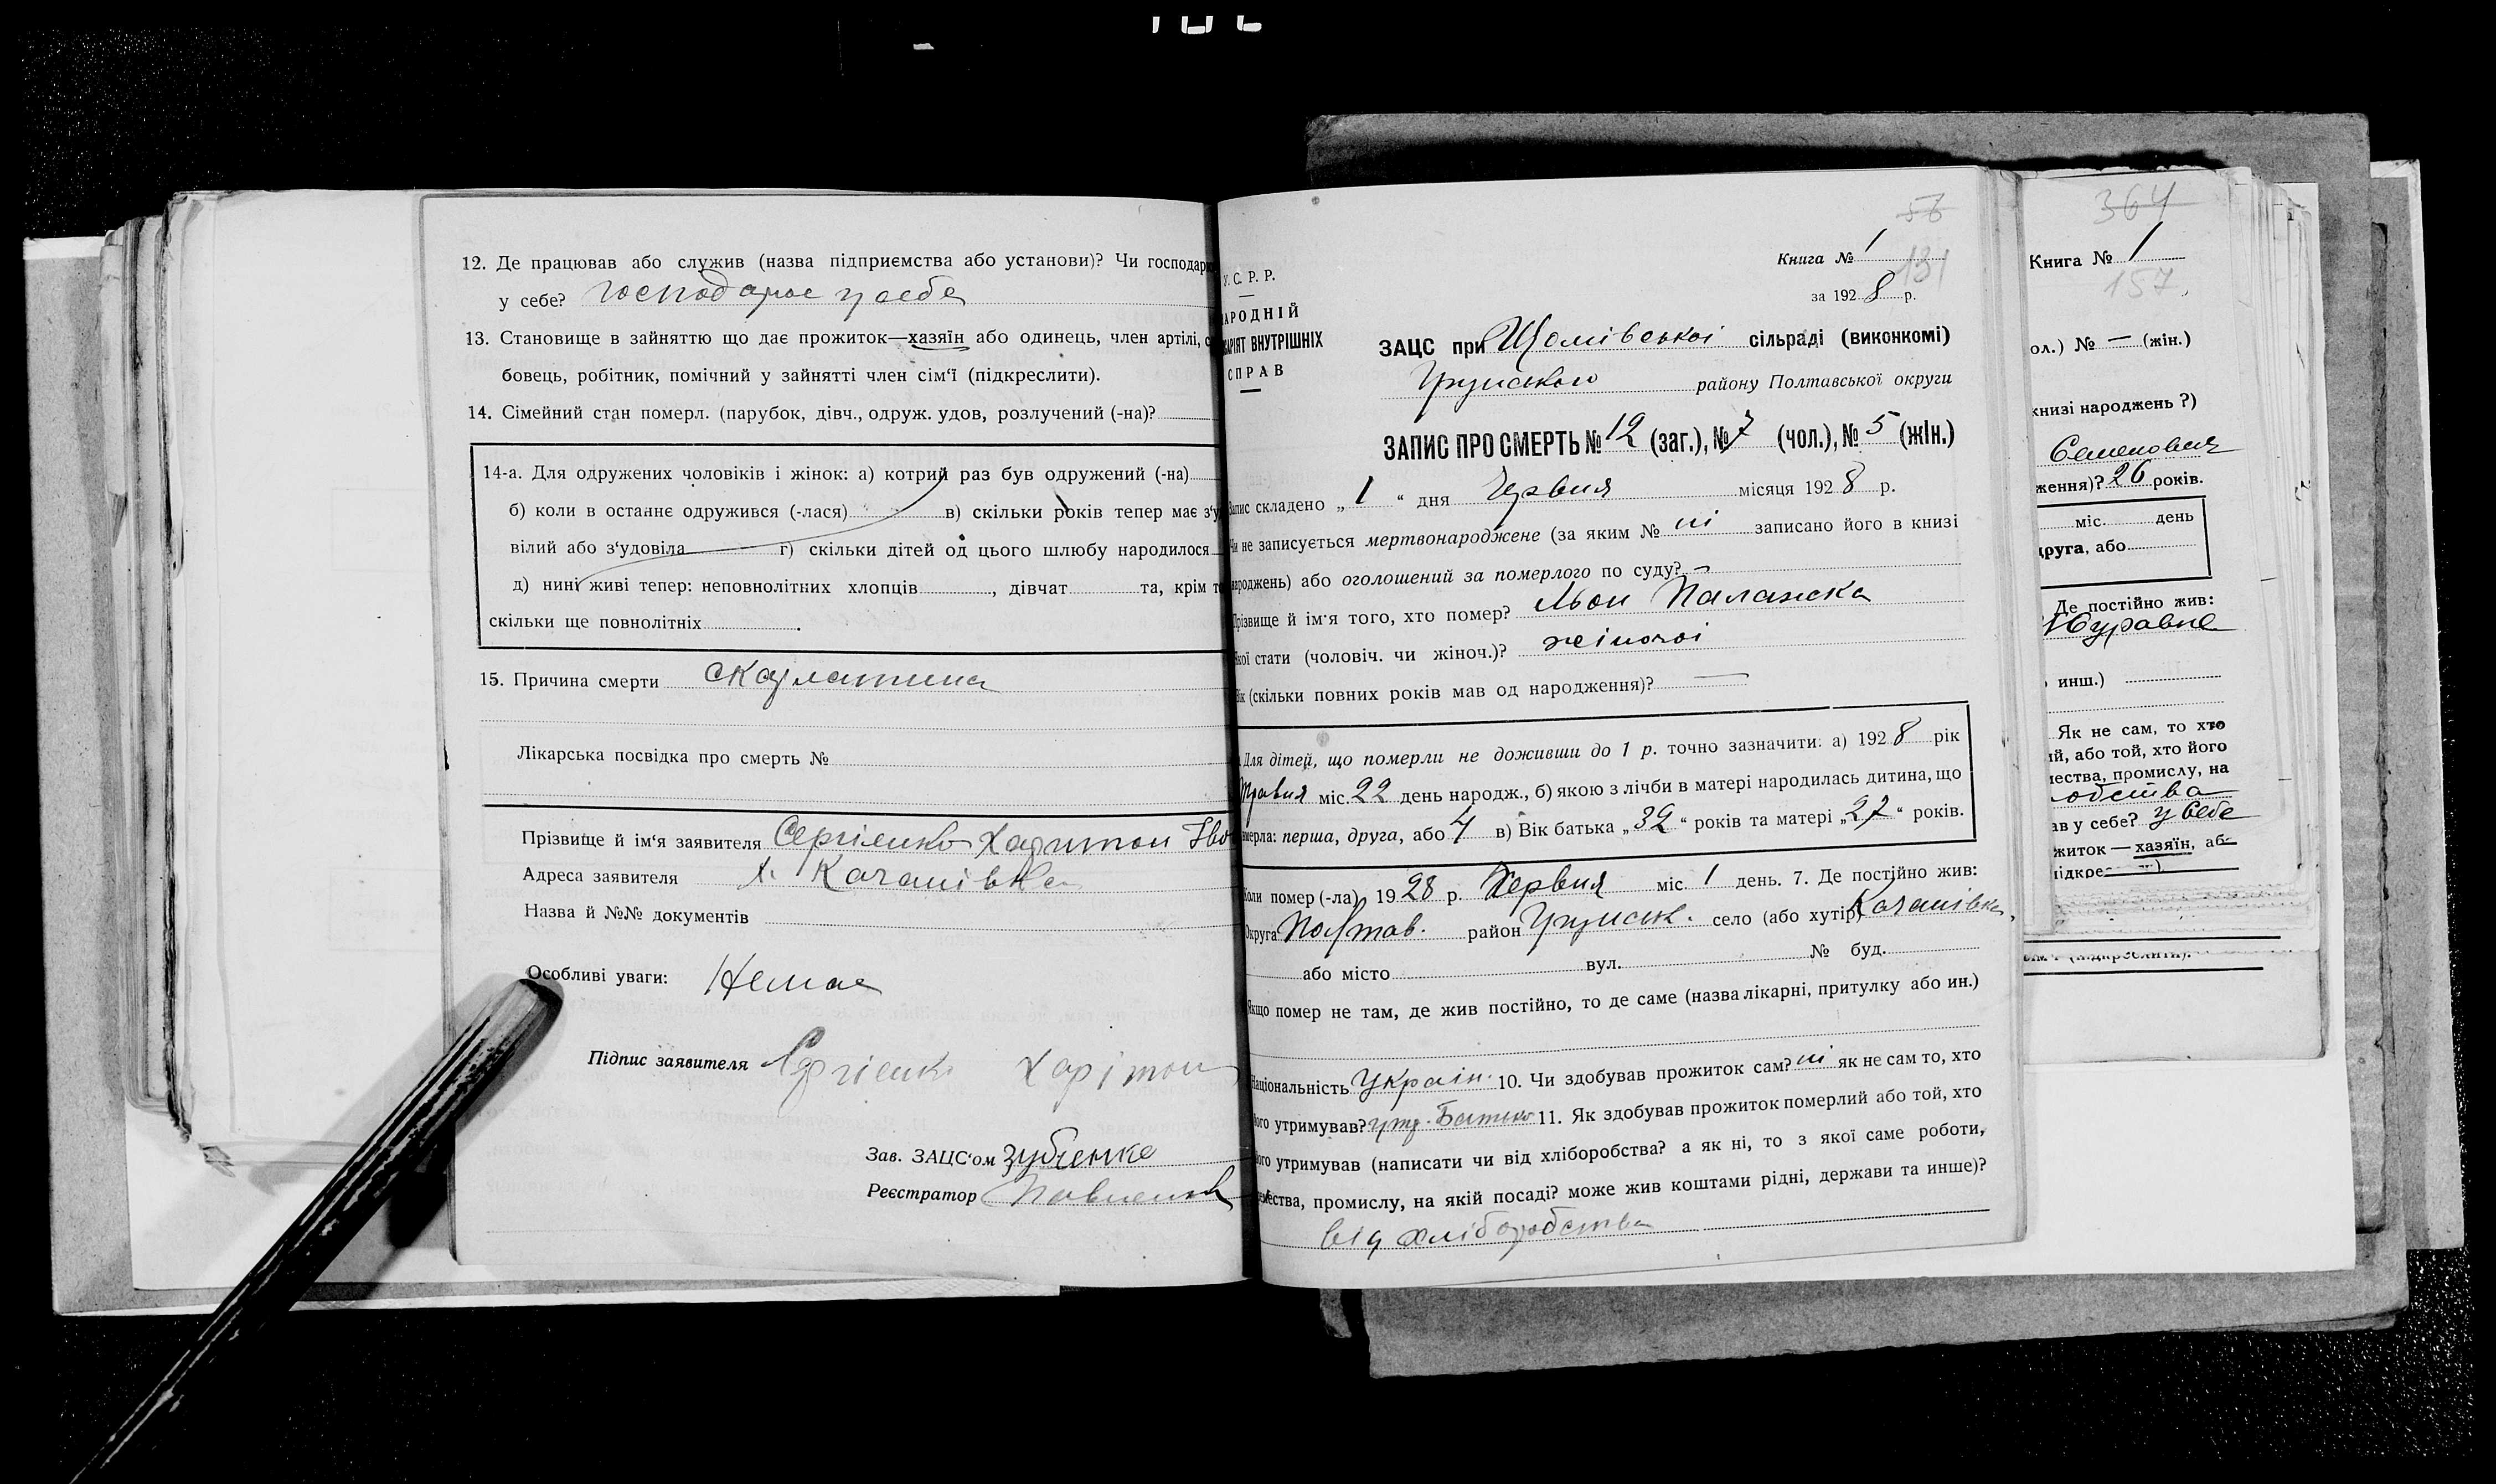 12. Де працював або служив (назва підприємства або установи)? Чи господар
у себе? господарює у себе
13. Становище в зайняттю що дає прожиток—хазяїн або одинець, член артілі,
бовець, робітник, помічний у зайнятті член сім'ї (підкреслити).
14. Сімейний стан померл. (парубок, дівч., одруж. удов, розлучений (-на)?
14-а. Для одружених чоловіків і жінок: а) котрий раз був одружений (-на)
б) коли в останнє одружився (-лася) в) скільки років тепер має з'у
вілий або з'удовіла г) скільки дітей од цього шлюбу народилося
д) нині живі тепер: неповнолітних хлопців, дівчат та, крім т
скільки ще повнолітніх.
15. Причина смерти скарлатина
Лікарська посвідка про смерть №
Прізвище й ім'я заявителя Сергієнко Харитон Іво
Адреса заявителя х. Качанівка
Назва й №№ документів
Особливі уваги: Немає
Підпис заявителя Сергієнко Харітон
Зав. ЗАЦС'ом Зубченко
Реєстратор
56
Книга № 1
131
за 1928 р.
У. С. Р. Р.
АРОДНІЙ
АРІЯТ ВНУТРІШНІХ
СПРАВ
ЗАЦС при сільраді (виконкомі)
району Полтавської округи
ЗАПИС ПРО СМЕРТЬ № 12 (заг.), № 7 (чол.), № 5 (жін.)
Запис складено „1“ дня Червня місяця 1928 р.
Чи не записується мертвонароджене (за яким № ні записано його в книзі
народжень) або оголошений за померлого по суду? —
Прізвище й ім'я того, хто помер? Палажка
Якої стати (чоловіч. чи жіноч.)? жіночої
Вік (скільки повних років мав од народження)? —
Для дітей, що померли не доживши до 1 р. точно зазначити: а) 1928 рік
Травня міс. 22 день народж., б) якою з лічби в матері народилась дитина, що
вмерла: перша, друга, або 4 в) Вік батька „32“ років та матері „27“ років.
Коли помер (-ла) 1928 р. Червня міс. 1 день. 7. Де постійно жив:
Округа Полтав. район село (або хутір) Качанівка,
або місто вул. № буд.
Якщо помер не там, де жив постійно, то де саме (назва лікарні, притулку або ин.)
Національність Україн. 10. Чи здобував прожиток сам? ні як не сам то, хто
його утримував? утр. Батько 11. Як здобував прожиток померлий або той, хто
його утримував (написати чи від хліборобства? а як ні, то з якої саме роботи,
ремества, промислу, на якій посаді? може жив коштами рідні, держави та инше)?
від хліборобства
364
Книга № 1
157
ол.) № — (жін.)
книзі народжень ?)
Семенович
ження)? 26 років.
міс. день
друга, або
Де постійно жив:
инш.)
Як не сам, то хто
ий, або той, хто його
мества, промислу, на
ав у себе? у себе
житок — хазяїн, або
підкре